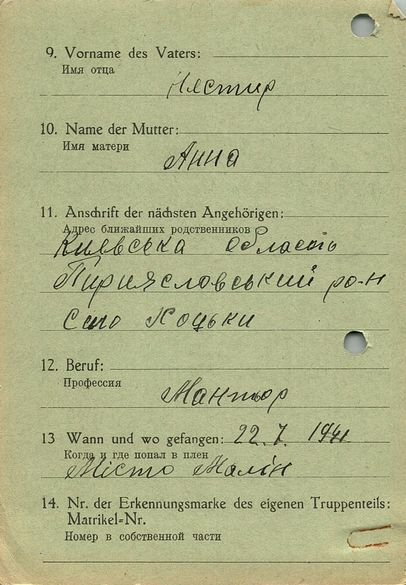 9. Vorname des Vaters:
Имя отца
Нестир
10. Name der Mutter:
Имя матери
Анна
11. Anschrift der nächsten Angehörigen:
Адрес ближайших родственников
Киевська область
Пириясловський ро-н
Село Хоцьки
12. Beruf:
Профессия
Мантьор
13 Wann und wo gefangen: 22. 7. 1941
Когда и где попал в плен
Місто Малін
14. Nr. der Erkennungsmarke des eigenen Truppenteils:
Matrikel-Nr.
Номер в собственной части